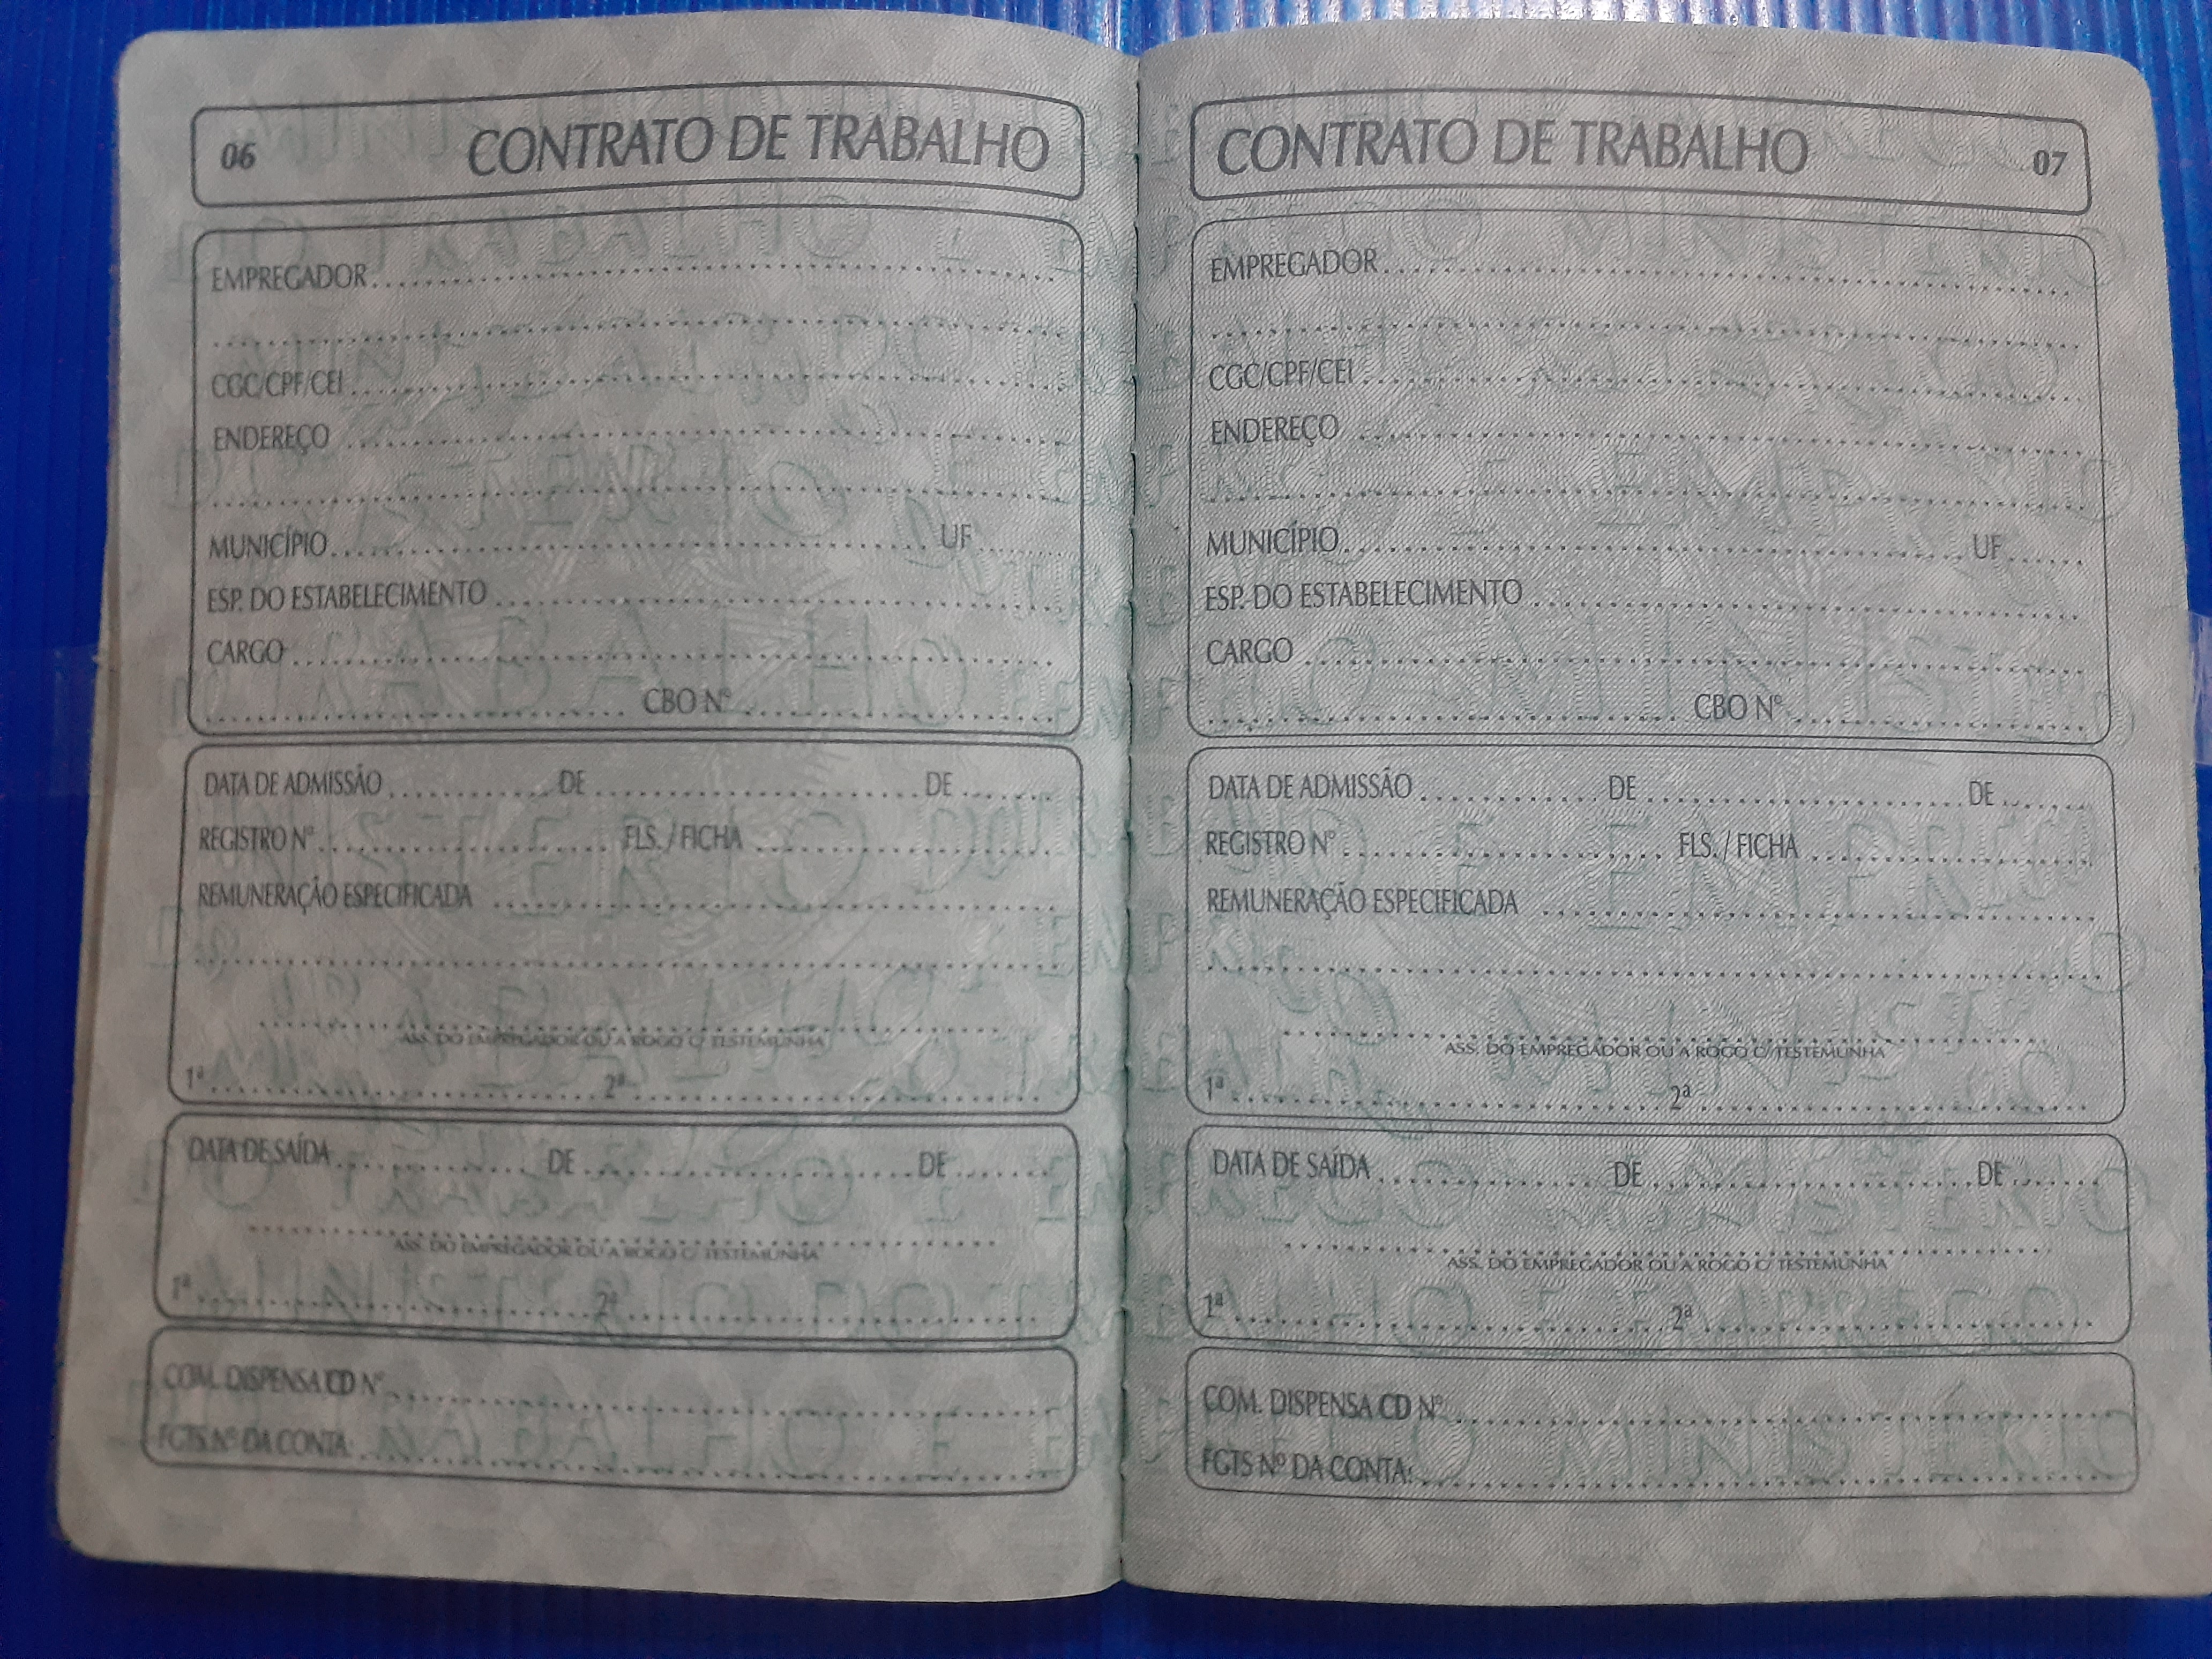 06 CONTRATO DE TRABALHO
EMPREGADOR
CGC/CPF/CEI
ENDEREÇO
MUNICÍPIO UF
ESP. DO ESTABELECIMENTO
CARGO
CBO Nº
DATA DE ADMISSÃO DE DE
REGISTRO Nº FLS. / FICHA
REMUNERAÇÃO ESPECIFICADA
ASS. DO EMPREGADOR OU A ROGO C/ TESTEMUNHA
1ª 2ª
DATA DE SAÍDA DE DE
ASS. DO EMPREGADOR OU A ROGO C/ TESTEMUNHA
1ª 2ª
COM. DISPENSA CD Nº
FGTS Nº DA CONTA:
CONTRATO DE TRABALHO 07
EMPREGADOR
CGC/CPF/CEI
ENDEREÇO
MUNICÍPIO UF
ESP. DO ESTABELECIMENTO
CARGO
CBO Nº
DATA DE ADMISSÃO DE DE
REGISTRO Nº FLS. / FICHA
REMUNERAÇÃO ESPECIFICADA
ASS. DO EMPREGADOR OU A ROGO C/ TESTEMUNHA
1ª 2ª
DATA DE SAÍDA DE DE
ASS. DO EMPREGADOR OU A ROGO C/ TESTEMUNHA
1ª 2ª
COM. DISPENSA CD Nº
FGTS Nº DA CONTA: